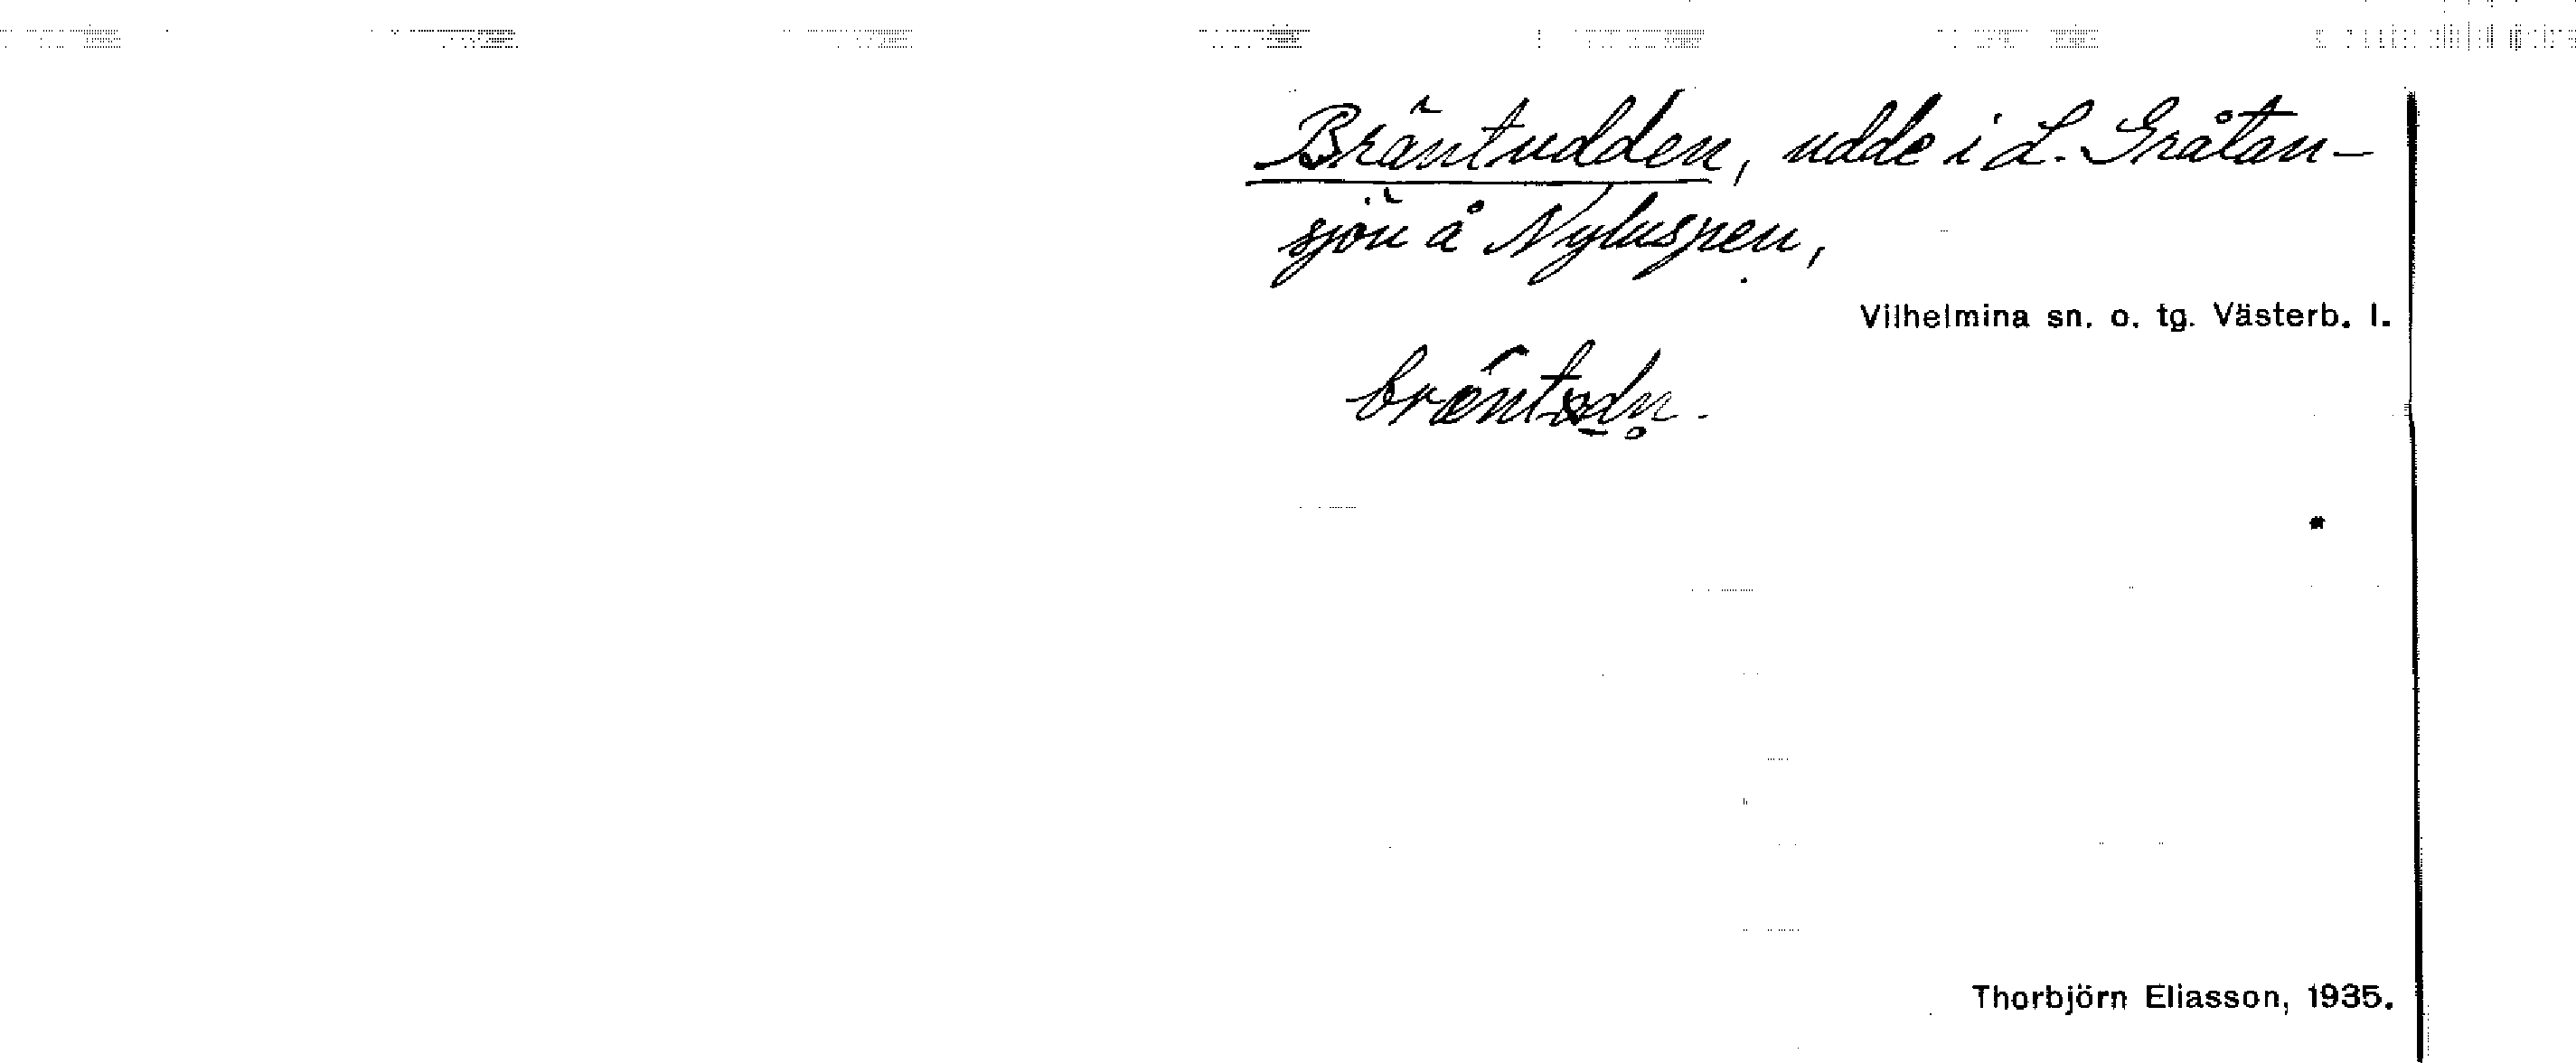 Bräntudden, udde i L. Gråtan-
sjön å Nyluspen,
Vilhelmina sn. o. tg. Västerb. l.
Thorbjörn Eliasson, 1935.